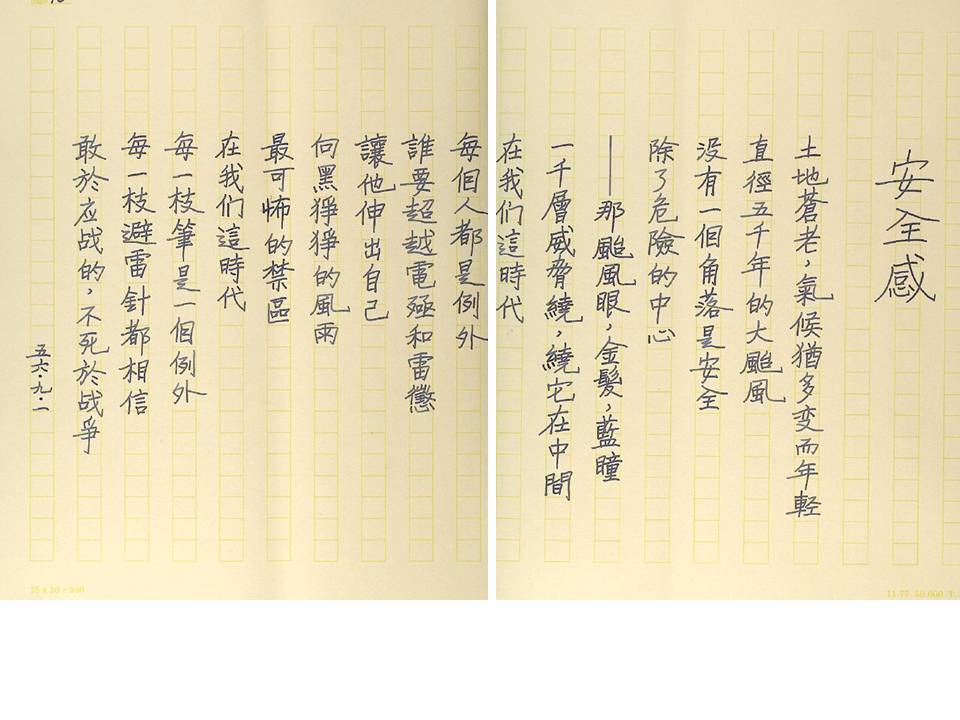 安全感
土地蒼老，氣候猶多变而年轻
直徑五千年的大颱風
没有一個角落是安全
除了危險的中心
——那颱風眼，金髮，藍瞳
一千層威脅繞，繞它在中間
在我们這時代
每個人都是例外
誰要超越電殛和雷懲
讓他伸出自己
向黑猙猙的風雨
最可怖的禁區
在我们這時代
每一枝筆是一個例外
每一枝避雷針都相信
敢於应战的，不死於战爭
五六·九·一
25 x 20 = 500